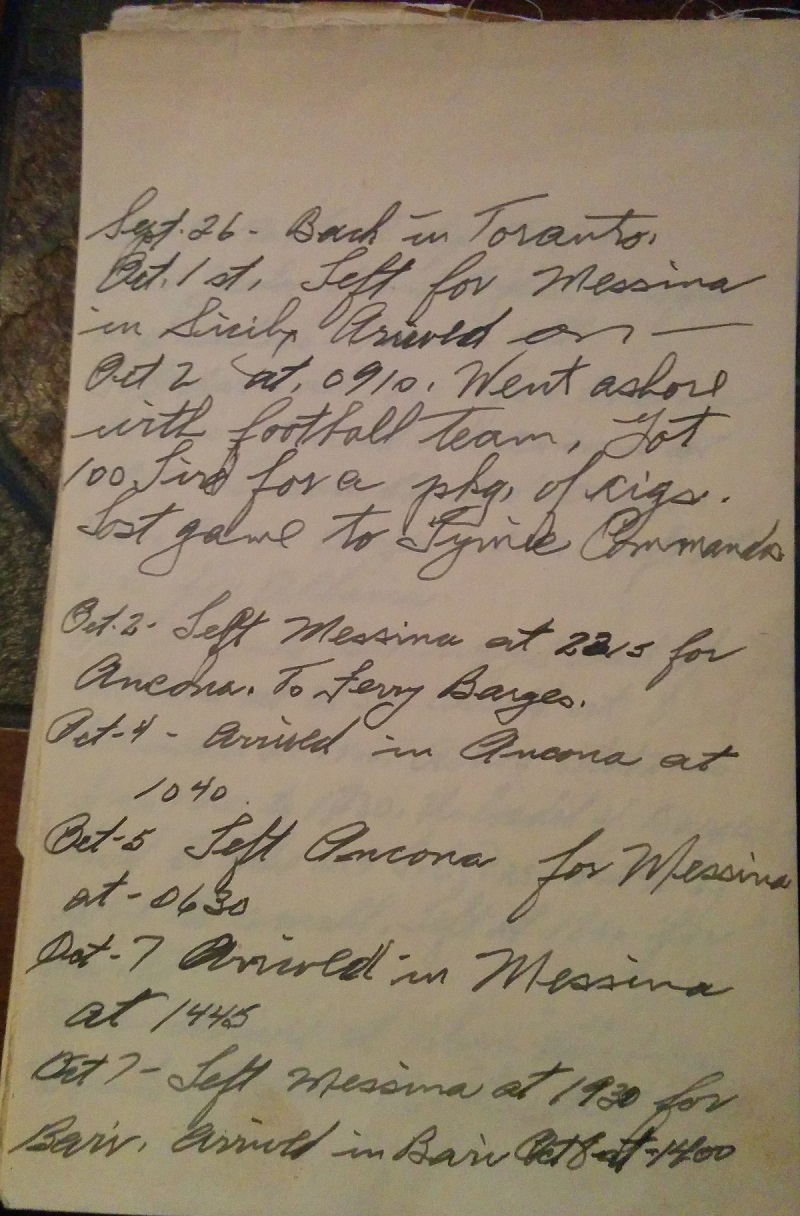 Sept. 26 - Back in Toranto.
Oct. 1 st. Left for Messina
in Sicily Arived on —
Oct 2 at, 0910. Went ashore
with football team, Got
100 Lira for a pkg. of cigs.
Lost game to Commando
Oct. 2 - Left Messina at 2215 for
Ancona. To Ferry Barges.
Oct - 4 - Arrived in Ancona at
1040.
Oct - 5 Left Ancona for Messina
at - 0630
Oct - 7 Arrived in Messina
at 1445
Oct 7 - Left Messina at 1930 for
Bari. Arrived in Bari Oct 8 at - 1400